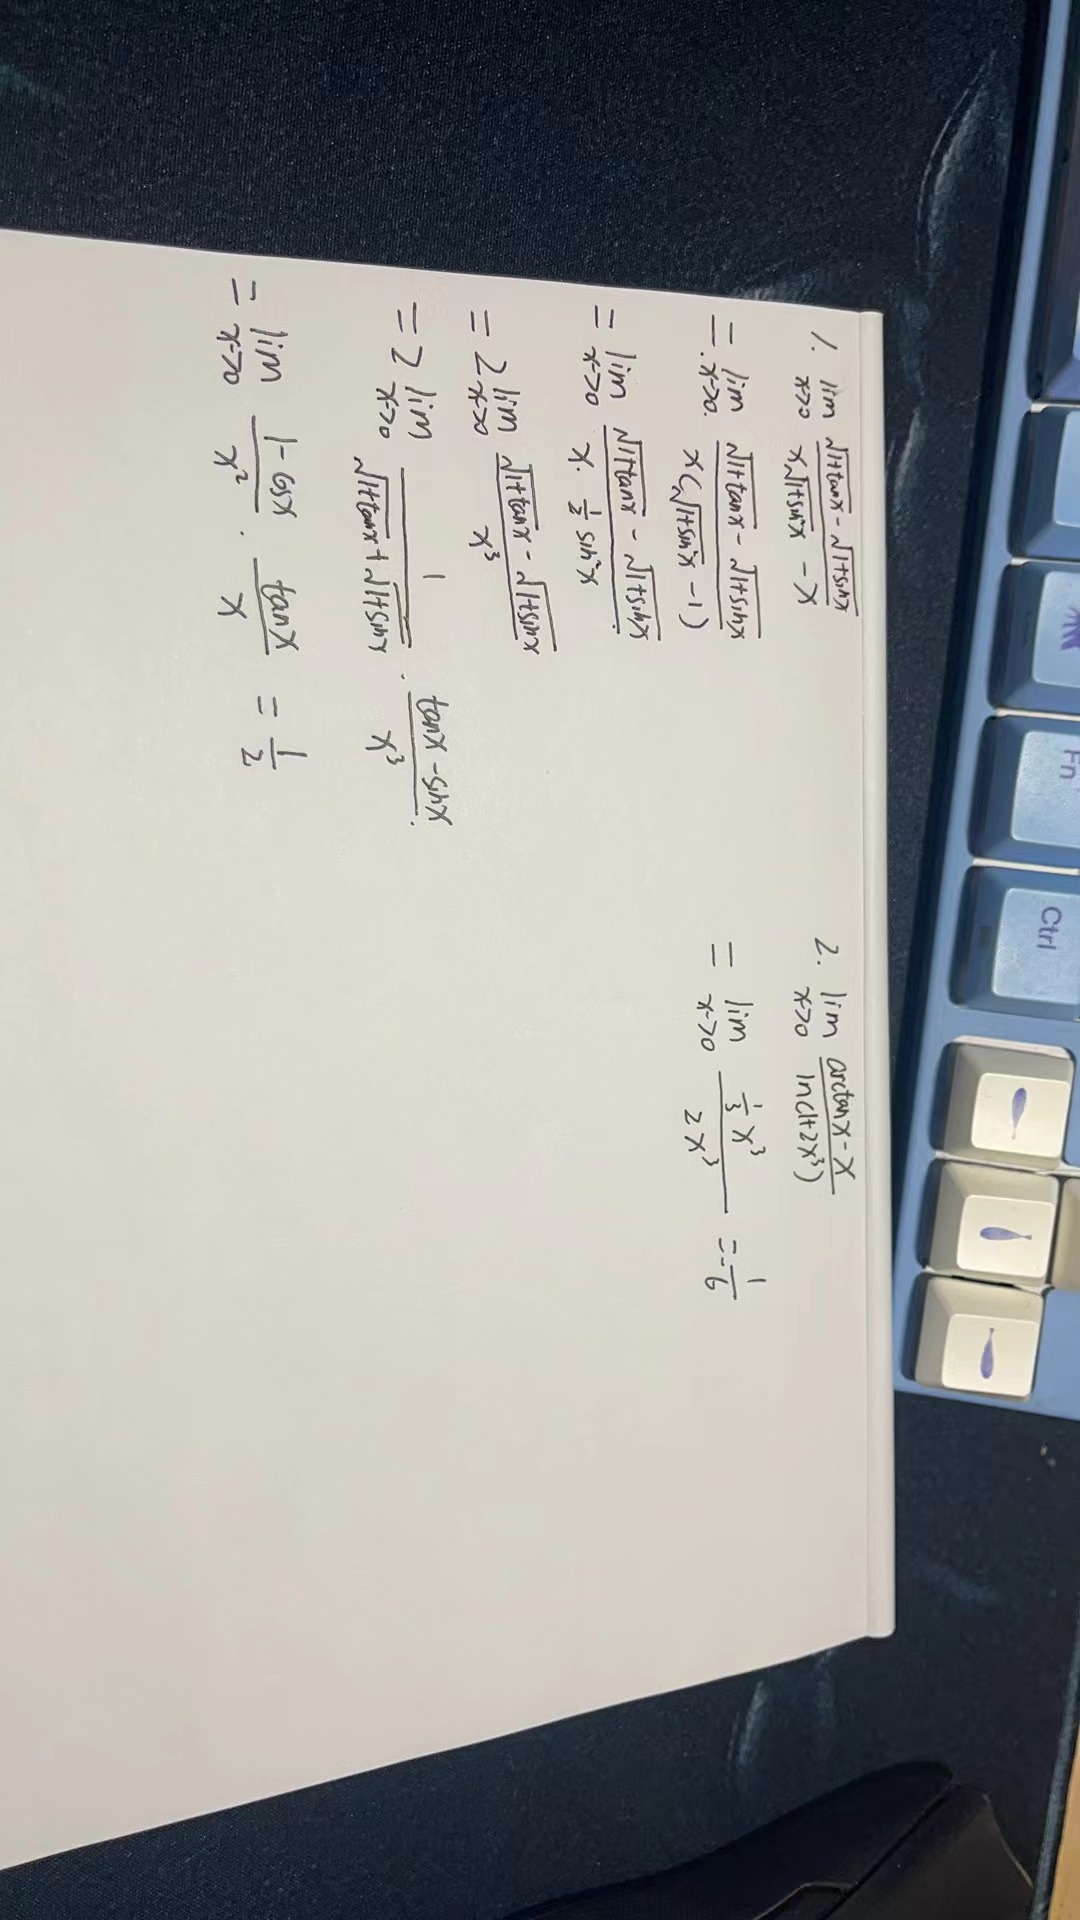 1. lim x→0 (√(1+tanx) - √(1+sinx)) / (x√(1+sin²x) - x)
= lim x→0 (√(1+tanx) - √(1+sinx)) / (x(√(1+sin²x) - 1))
= lim x→0 (√(1+tanx) - √(1+sinx)) / (x · ½ sin²x)
= 2 lim x→0 (√(1+tanx) - √(1+sinx)) / x³
= 2 lim x→0 1 / (√(1+tanx) + √(1+sinx)) · (tanx - sinx) / x³
= lim x→0 (1 - cosx) / x² · tanx / x = 1/2
2. lim x→0 (arctanx - x) / ln(1+2x³)
= lim x→0 (⅓x³) / (2x³) = -1/6
Fn
Ctrl